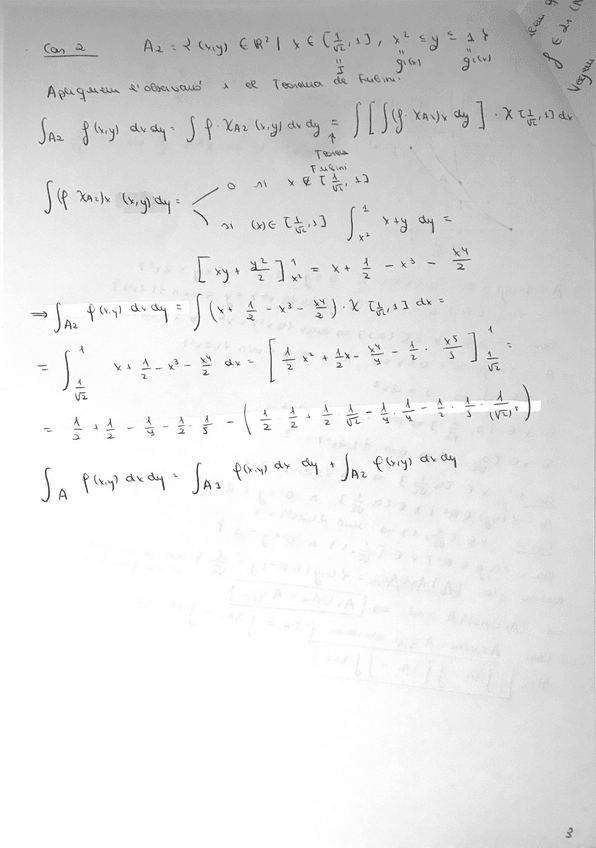 Cas 2 A2 = { (x,y) ∈ R² | x ∈ [1/√2, 1], x² ≤ y ≤ 1 }
I g1(x) g2(x)
Apliquem l'observació i el Teorema de Fubini.
∫A2 f(x,y) dx dy = ∫ f · χA2 (x,y) dx dy = ∫ [ ∫ (f · χA2)x dy ] · χ [1/√2, 1] dx
↑
Teorema
Fubini
∫ (f χA2)x (x,y) dy = 0 si x ∉ [1/√2, 1]
si (x) ∈ [1/√2, 1] ∫_{x²}^{1} x+y dy =
[ xy + y²/2 ]_{x²}^{1} = x + 1/2 - x³ - x⁴/2
⇒ ∫A2 f(x,y) dx dy = ∫ (x + 1/2 - x³ - x⁴/2) · χ [1/√2, 1] dx =
= ∫_{1/√2}^{1} x + 1/2 - x³ - x⁴/2 dx = [ 1/2 x² + 1/2 x - x⁴/4 - 1/2 · x⁵/5 ]_{1/√2}^{1} =
= 1/2 + 1/2 - 1/4 - 1/2 · 1/5 - ( 1/2 · 1/2 + 1/2 · 1/√2 - 1/4 · 1/4 - 1/2 · 1/5 · 1/(√2)⁵ )
∫A f(x,y) dx dy = ∫A1 f(x,y) dx dy + ∫A2 f(x,y) dx dy
3